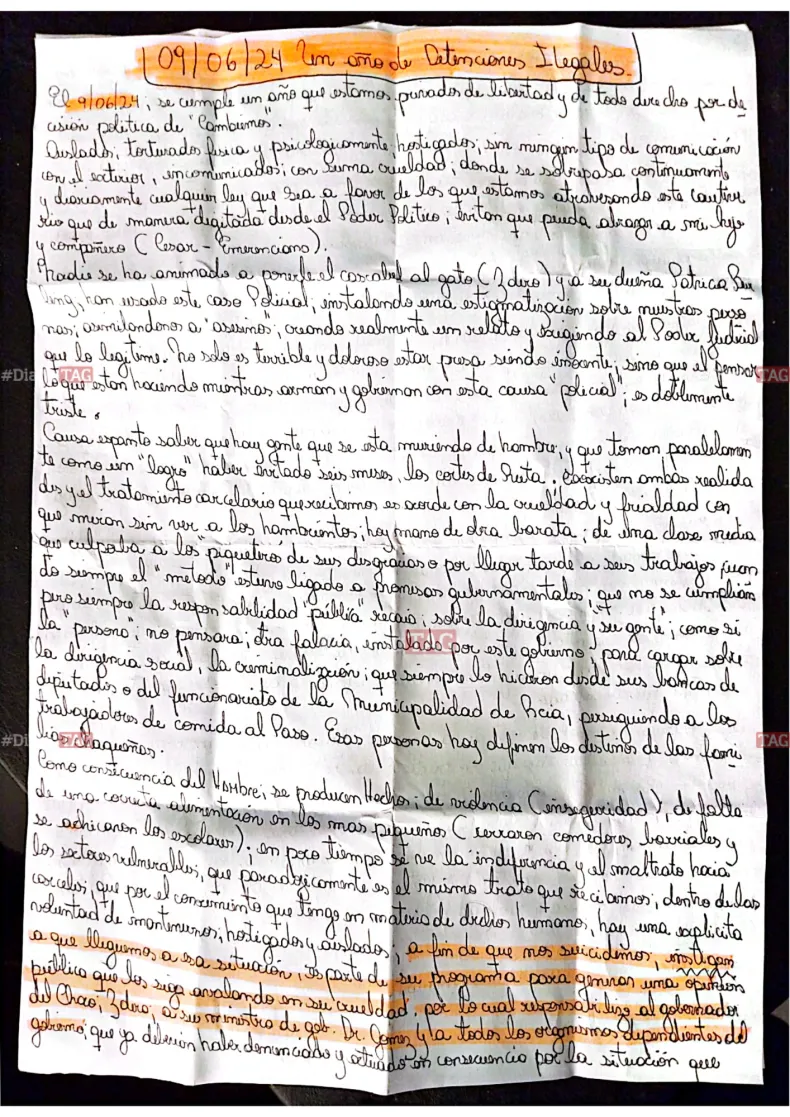 09/06/24 Un año de Detenciones Ilegales
El 9/06/24, se cumple un año que estamos privados de libertad y de todo derecho por de
cisión política de "Cambiemos".
Aislados, torturados física y psicologicamente, hostigados, sin ningun tipo de comunicación
con el exterior, incomunicados; con suma crueldad; donde se sobrepasa continuamente
y diariamente cualquier ley que sea a favor de los que estamos atravesando este cautive
rio que de manera digitada desde el Poder Politico; evitan que pueda abrazar a mi hijo
y compañero (Cesar - Emerenciano).
Nadie se ha animado a ponerle el cascabel al gato (Zdero) y a su dueña Patricia Bu
llring, han usado este caso Policial; instalando una estigmatización sobre nuestras perso
nas; asimilandonos a "asesinos"; creando realmente un relato y exigiendo al Poder Judicial
que lo legitime. No solo es terrible y doloroso estar presa siendo inocente; sino que el pensar
lo que estan haciendo mientras arman y gobiernan con esta causa "policial"; es doblemente
triste.
Causa espanto saber que hay gente que se esta muriendo de hambre, y que toman paralelamen
te como un "logro" haber evitado seis meses, los cortes de Ruta. Coexisten ambas realida
des y el tratamiento carcelario que recibimos es acorde con la crueldad y frialdad con
que miran sin ver a los hambrientos; hoy mano de obra barata; de una clase media
que culpaba a los "piqueteros" de sus desgracias o por llegar tarde a sus trabajos, cuan
do siempre el "metodo" estuvo ligado a promesas gubernamentales; que no se cumplían
pero siempre la responsabilidad "pública" recaía; sobre la dirigencia y "su gente"; como si
la "persona"; no pensara; otra falacia, instalado por este gobierno, para cargar sobre
la dirigencia social, la criminalización; que siempre lo hicieron desde sus bancas de
diputados o del funcionariato de la Municipalidad de Rcia, persiguiendo a los
trabajadores de comida al Paso. Esas personas hoy definen los destinos de las fami
lias chaqueñas.
Como consecuencia del Hambre; se producen Hechos; de violencia (inseguridad), de falta
de una correcta alimentación en los mas pequeños (cerraron comedores barriales y
se achicaron los escolares); en poco tiempo se ve la indiferencia y el maltrato hacia
los sectores vulnerables, que paradojicamente es el mismo trato que recibimos; dentro de las
carceles; que por el conocimiento que tengo en materia de drchos humanos, hay una explicita
voluntad de mantenernos, hostigados y aislados; a fin de que nos suicidemos, instigan
a que lleguemos a esa situación, es parte de su programa para generar una opinion
pública que los siga avalando en su crueldad, por lo cual responsabilizo al gobernador
del Chaco, Zdero, a su ministro de gob. Dr. Gomez y a todos los organismos dependientes del
gobierno, que ya debieron haber denunciado y actuado en consecuencia por la situación que
#Dia
TAG
TAG
TAG
#Di
TAG
TAG